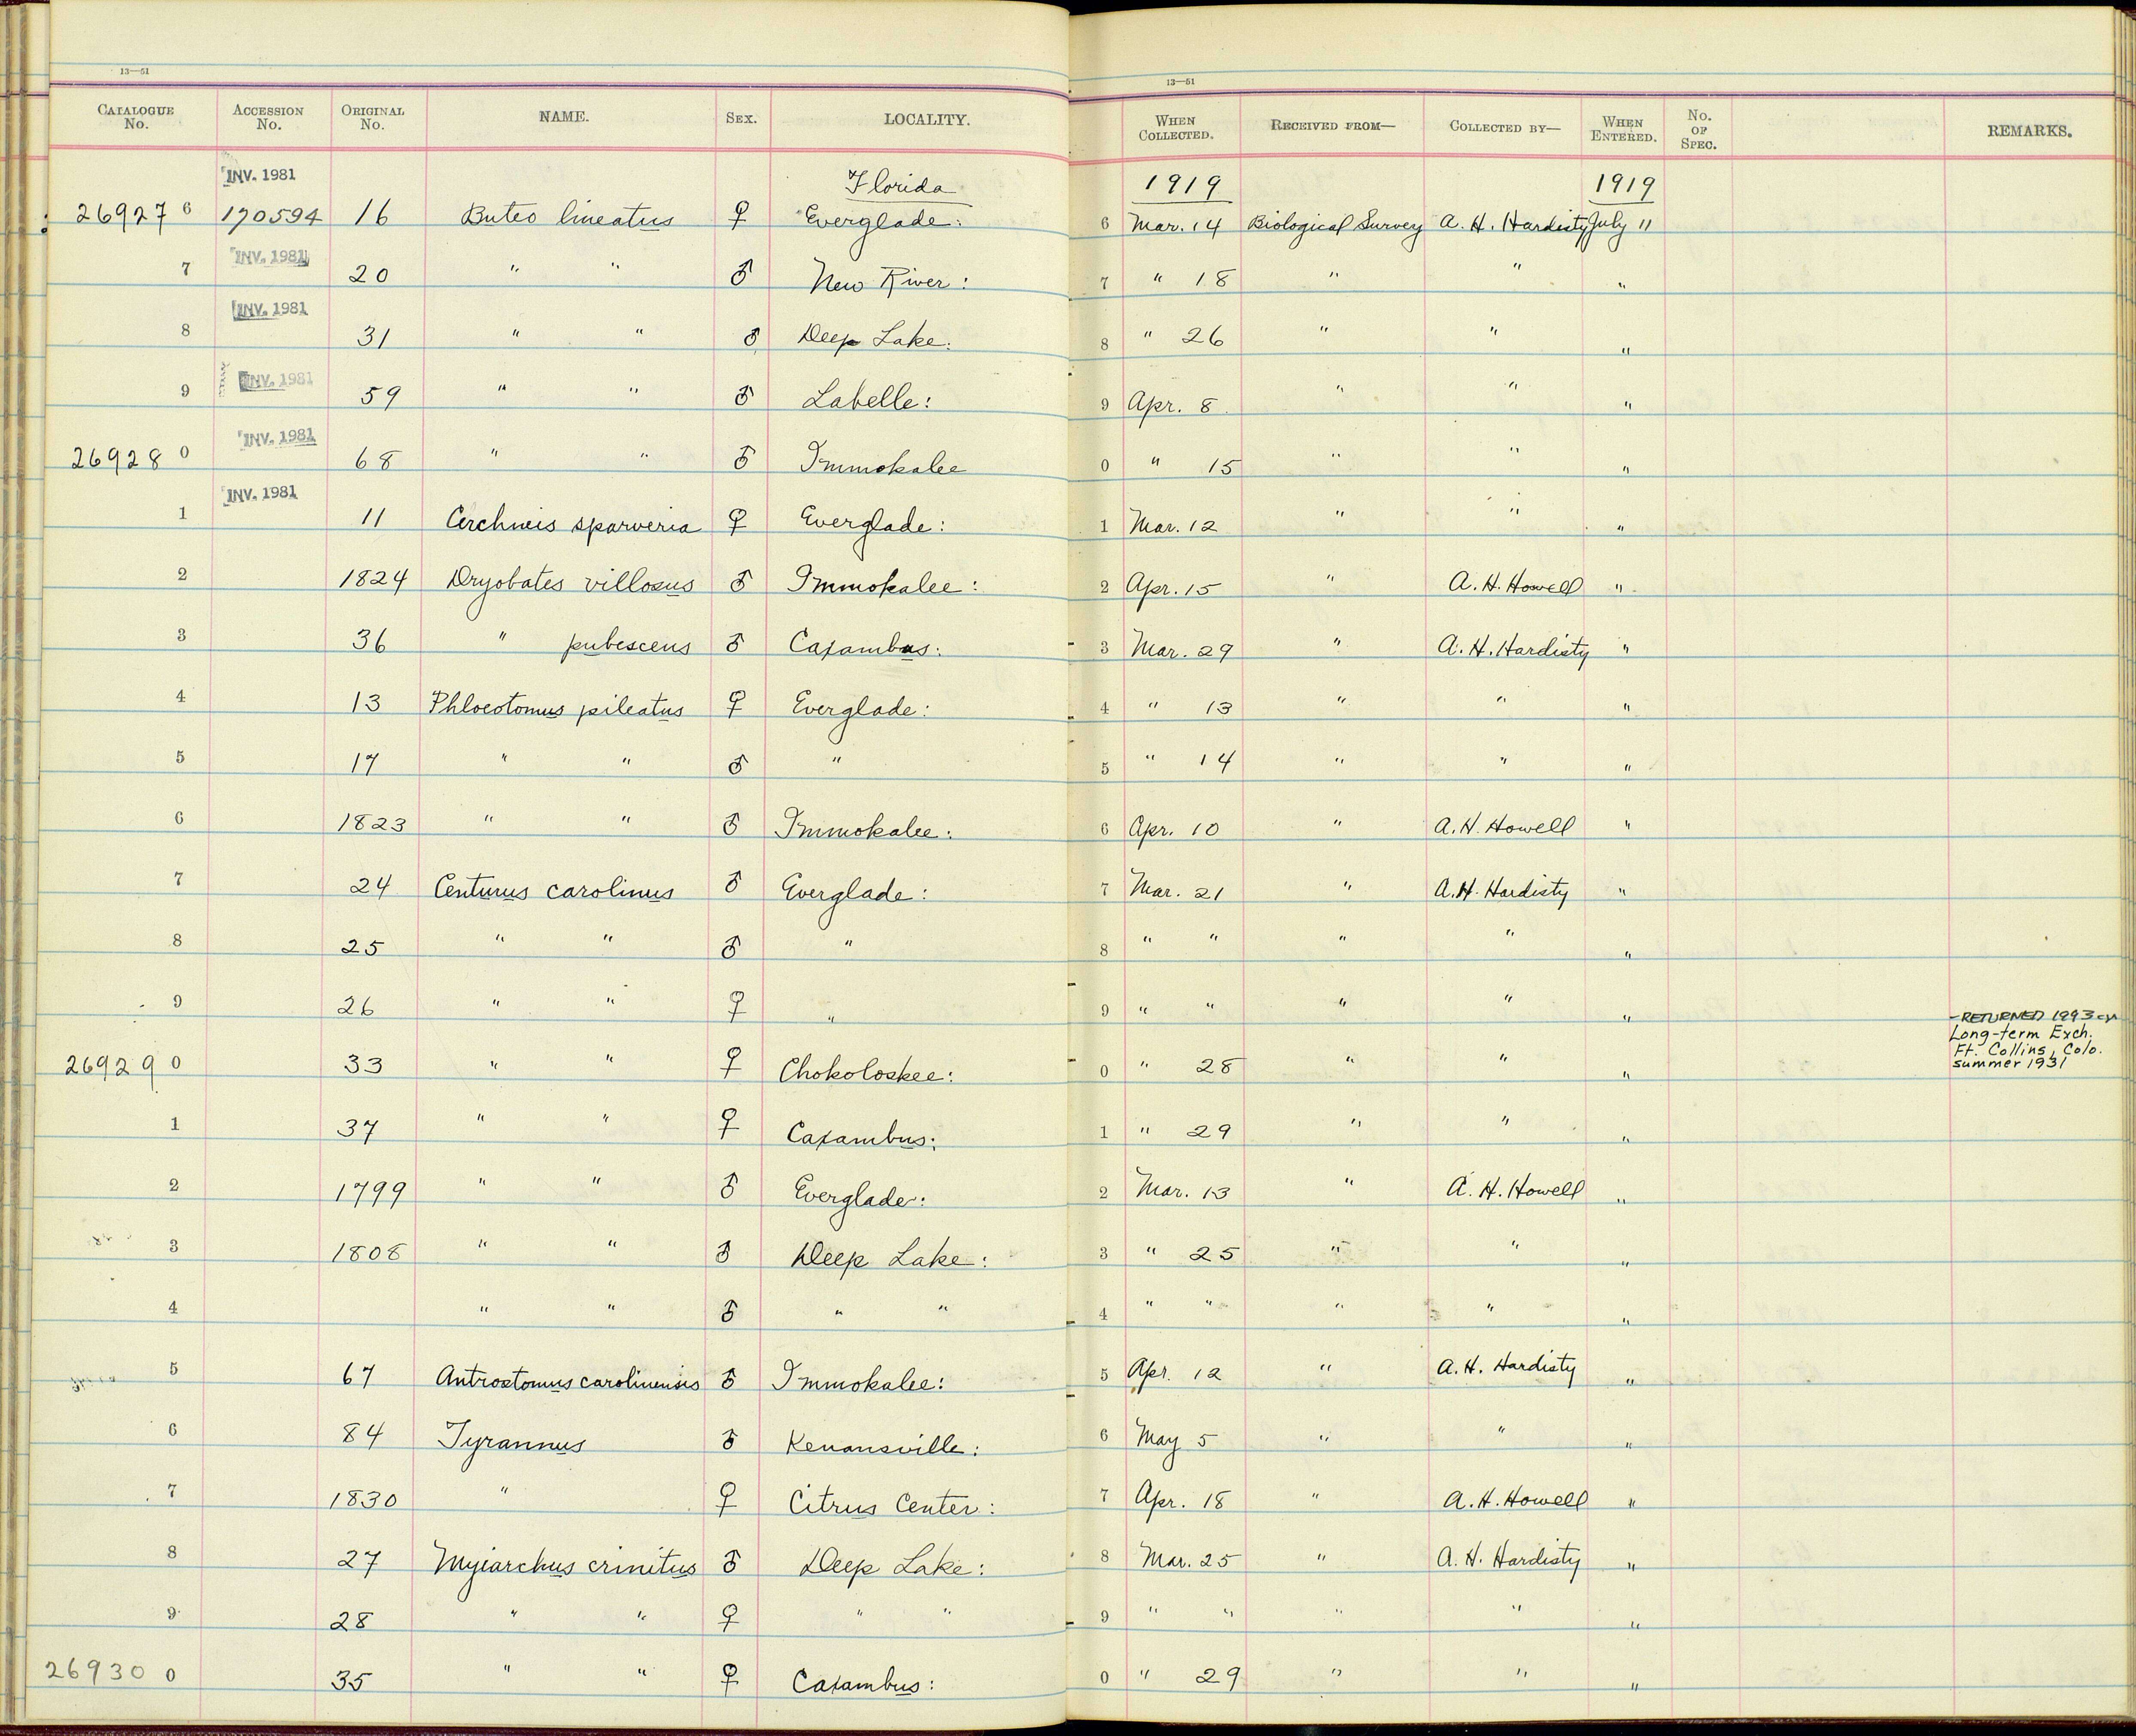 13—51
13—51
CATALOGUE No. ACCESSION No. ORIGINAL No. NAME. SEX. LOCALITY. WHEN COLLECTED. RECEIVED FROM— COLLECTED BY— WHEN ENTERED. No. OF SPEC. REMARKS.
INV. 1981 Florida 1919 1919
26927 6 170594 16 Buteo lineatus ♀ Everglade: 6 Mar. 14 Biological Survey A. H. Hardisty July 11
INV. 1981
7 20 " " ♂ New River: 7 " 18 " " "
INV. 1981
8 31 " " ♂ Deep Lake: 8 " 26 " " "
INV. 1981
9 59 " " ♂ Labelle: 9 Apr. 8 " " "
INV. 1981
26928 0 68 " " ♂ Immokalee 0 " 15 " " "
INV. 1981
1 11 Cerchneis sparveria ♀ Everglade: 1 Mar. 12 " " "
2 1824 Dryobates villosus ♂ Immokalee: 2 Apr. 15 " A. H. Howell "
3 36 " pubescens ♂ Caxambas: 3 Mar. 29 " A. H. Hardisty "
4 13 Phloeotomus pileatus ♀ Everglade: 4 " 13 " " "
5 17 " " ♂ " 5 " 14 " " "
6 1823 " " ♂ Immokalee: 6 Apr. 10 " A. H. Howell "
7 24 Centurus carolinus ♂ Everglade: 7 Mar. 21 " A. H. Hardisty "
8 25 " " ♂ " 8 " " " " "
9 26 " " ♀ " 9 " " " " "
-RETURNED 1993
Long-term Exch.
Ft. Collins, Colo.
summer 1931
26929 0 33 " " ♀ Chokoloskee: 0 " 28 " " "
1 37 " " ♀ Caxambus: 1 " 29 " " "
2 1799 " " ♂ Everglade: 2 Mar. 13 " A. H. Howell "
3 1808 " " ♂ Deep Lake: 3 " 25 " " "
4 " " ♂ " " 4 " " " " "
5 67 Antrostomus carolinensis ♂ Immokalee: 5 Apr. 12 " A. H. Hardisty "
6 84 Tyrannus ♂ Kenansville: 6 May 5 " " "
7 1830 " ♀ Citrus Center: 7 Apr. 18 " A. H. Howell "
8 27 Myiarchus crinitus ♂ Deep Lake: 8 Mar. 25 " A. H. Hardisty "
9 28 " " ♀ " " 9 " " " " "
26930 0 35 " " ♀ Caxambus: 0 " 29 " " "